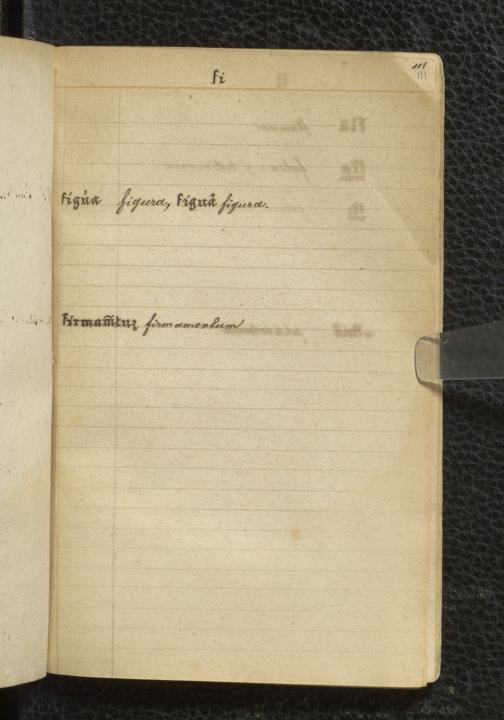 fi
111
111
figůa figura, figuã figura.
firmam̃tuꝫ firmamentum